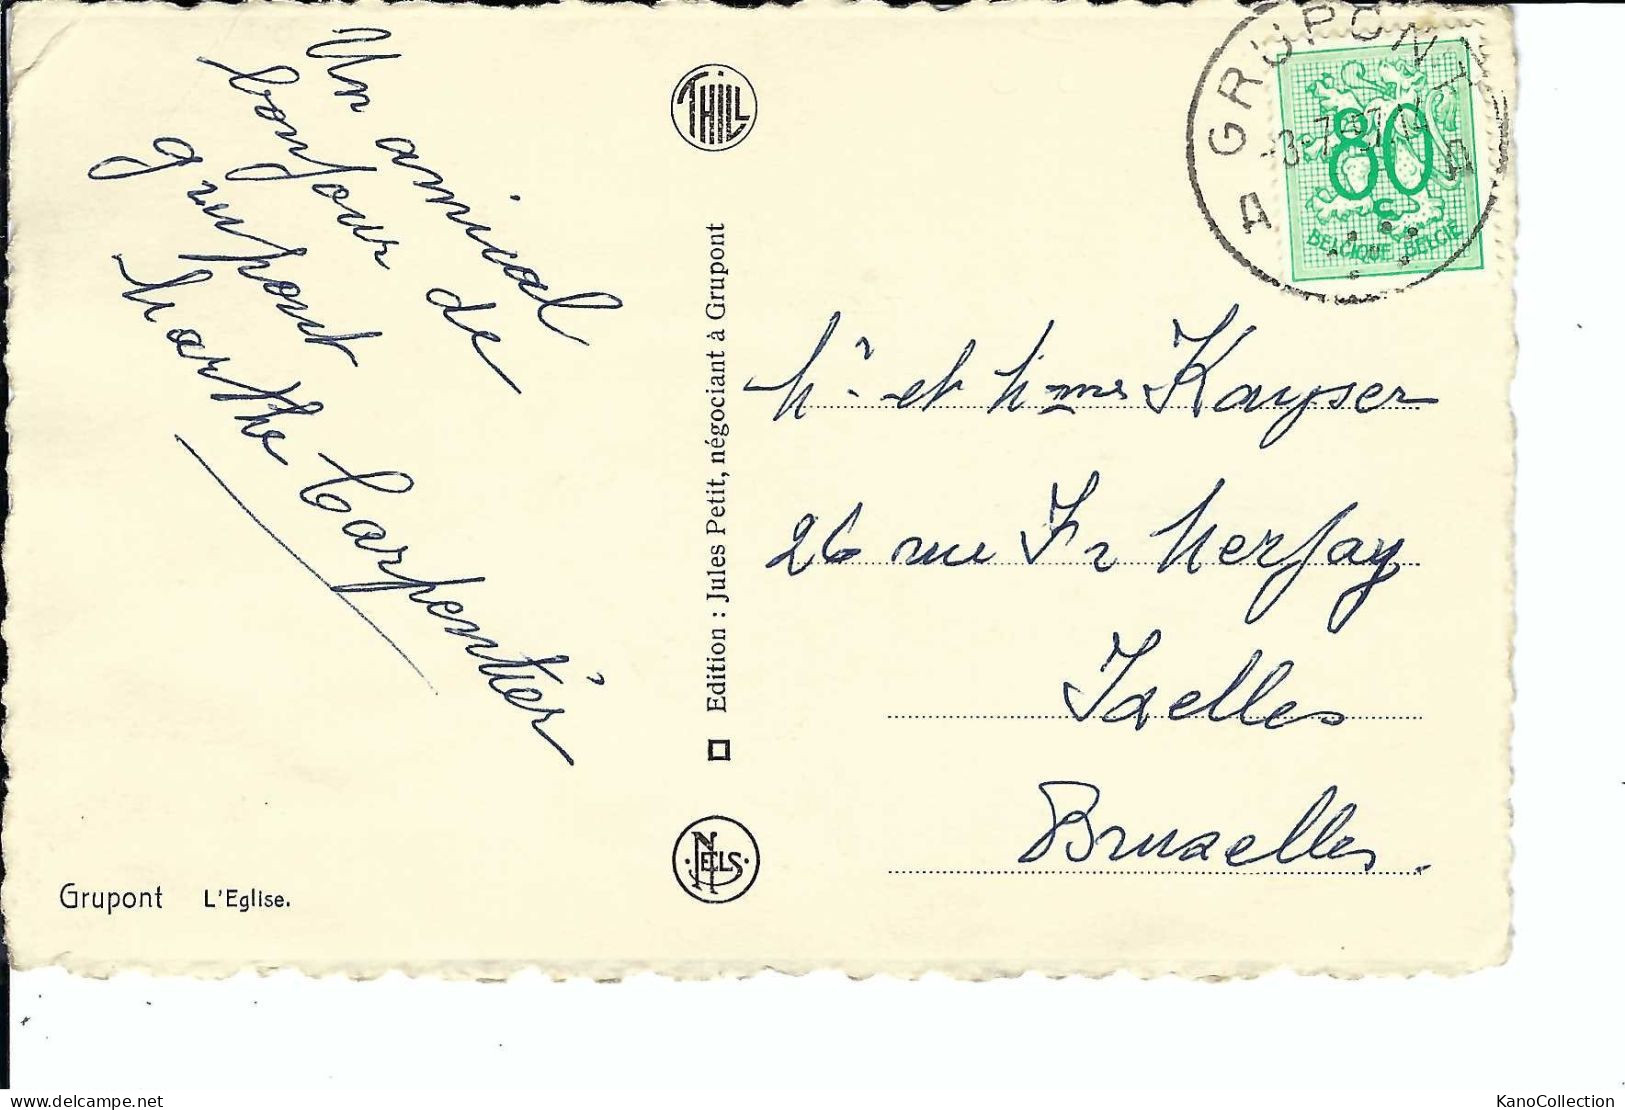 Un amical
bonjour de
grupont
Marthe Carpentier
Grupont L'Eglise.
THILL
Edition : Jules Petit, négociant à Grupont
NELS
GRUPONT
A A
-3-7-57.14
80
c
BELGIQUE-BELGIË
Mr et Mme Kayser
26 rue Fr Merjay
Ixelles
Bruxelles.
delcampe.net
KanoCollection